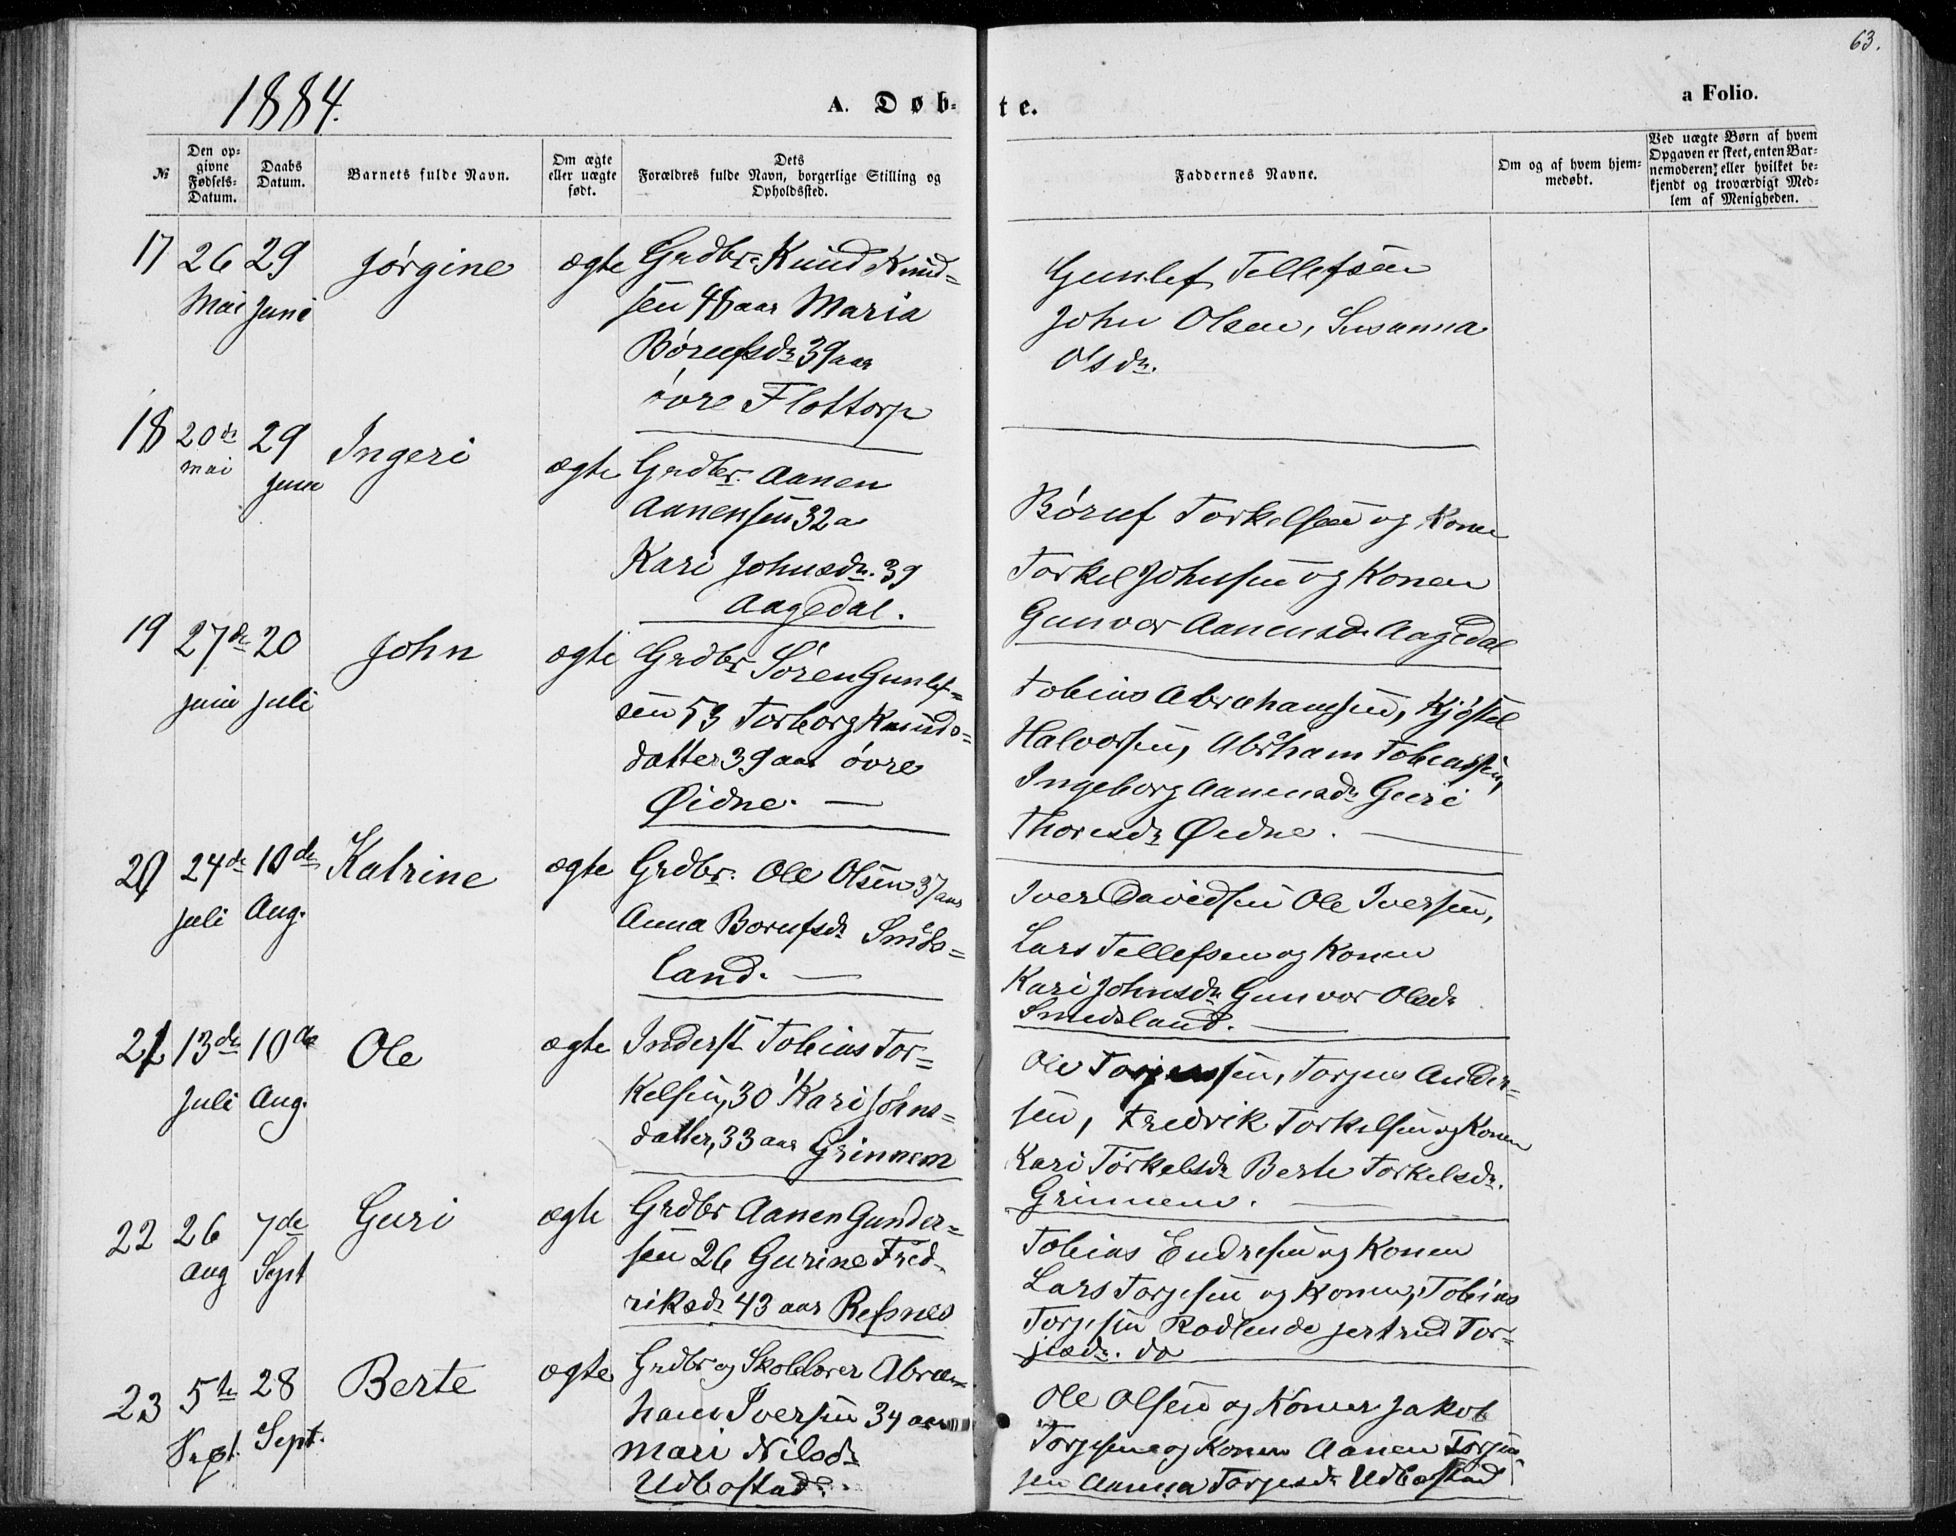 63.
1884.
A. Døb-
te.
a Folio.
№
Den op-
givne
Fødsels-
Datum.
Daabs
Datum.
Barnets fulde Navn.
Om ægte
eller uægte
født.
Dets
Forældres fulde Navn, borgerlige Stilling og
Opholdssted.
Faddernes Navne.
Om og af hvem hjem-
medøbt.
Ved uægte Børn af hvem
Opgaven er skeet, enten Bar-
nemoderen, eller hvilket be-
kjendt og troværdigt Med-
lem af Menigheden.
17 26 29 Jørgine ægte Grdbr. Knud Knud=
Mai Juni sen 48 aar Maria
Børufsdr 39 aar
øvre Flottorp
Gunlef Tellefsen
John Olsen, Susanna
Olsdr.
18 20de 29 Ingeri ægte Grdbr. Aanen
mai Juni Aanensen 32 a
Kari Johnsdr. 39
Aagedal.
Børuf Torkelsen og Kone
Torkel Johnsen og Konen
Gunvor Aanensdr Aagedal
19 27de 20 John ægte Grdbr Søren Gunlef=
juni juli sen 53 Torborg Knuds=
datter 39 aar øvre
Øidne. —
Tobias Abrahamsen, Kjøstel
Halvorsen, Abraham Tobiassen,
Ingeborg Aanensdr Guri
Thoresdr Øidne. —
20 24de 10de Katrine ægte Grdbr. Ole Olsen 37 aar
juli Aug. Anna Borufsdr Smeds=
land. —
Iver Davidsen Ole Iversen,
Lars Tellefsen og Konen
Kari Johnsdr Gunvor Olsdr
Smedsland. —
21 13de 10de Ole ægte Inderst Tobias Tor=
Juli Aug. kelsen, 30 Kari Johns=
datter, 33 aar Grinnem
Ole Torjussen, Torjus Ander=
sen, Fredrik Torkelsen og Konen
Kari Torkelsdr Berte Torkelsdr.
Grinnem. —
22 26 7de Guri ægte Grdbr Aanen Gunder=
aug Sept sen 26 Gurine Fred=
riksdr 43 aar Refsnes
Tobias Endresen og Konen
Lars Torjesen og Konen, Tobias
Torjesen Rodlende jertrud Tor=
jesdr. do
23 5te 28 Berte ægte Grdbr og Skolelærer Abra=
Sept. Sept. ham Iversen 34 aar
Mari Nilsdr
Udbostad.
Ole Olsen og Konen Jakob
Torjesen og Konen Aanen Torju
sen Aanna Torjesdr Udbostad